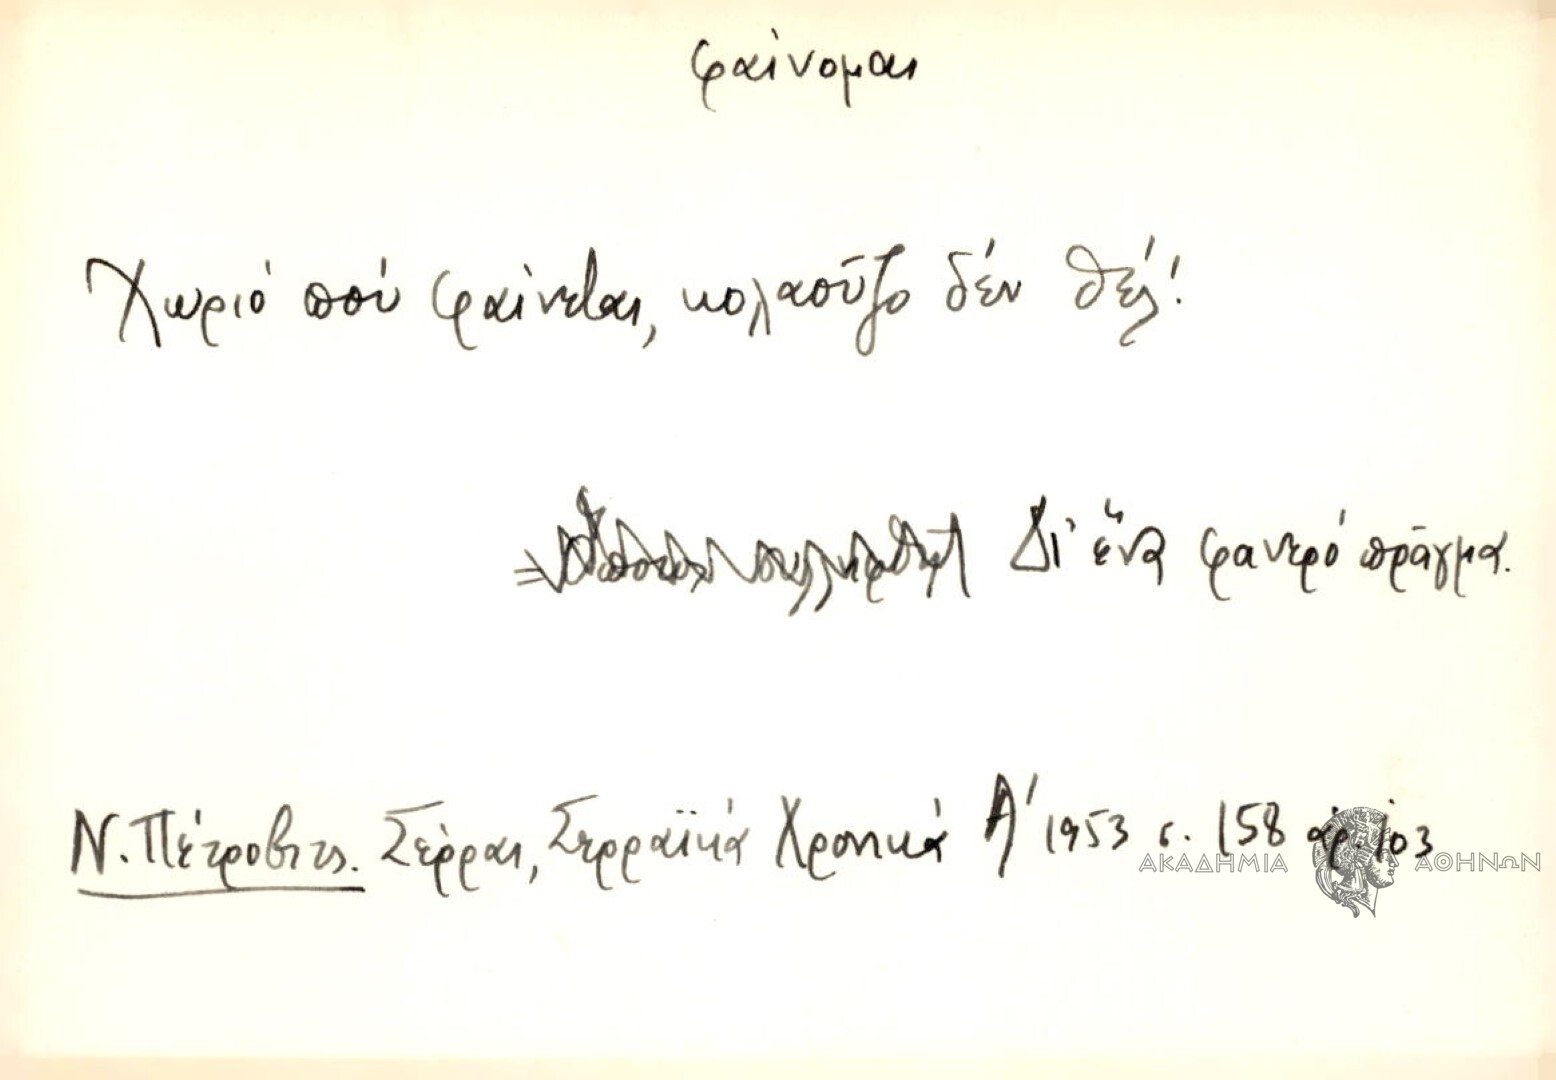 φαίνομαι
Χωριό πού φαίνεται, κολαοῦζο δέν θέλ'!
Δι' ἕνα φανερό πρᾶγμα.
Ν. Πέτροβιτς. Σέρραι, Σερραϊκά Χρονικά Α' 1953 σ. 158 ἀρ. 103
ΑΚΑΔΗΜΙΑ ΑΘΗΝΩΝ